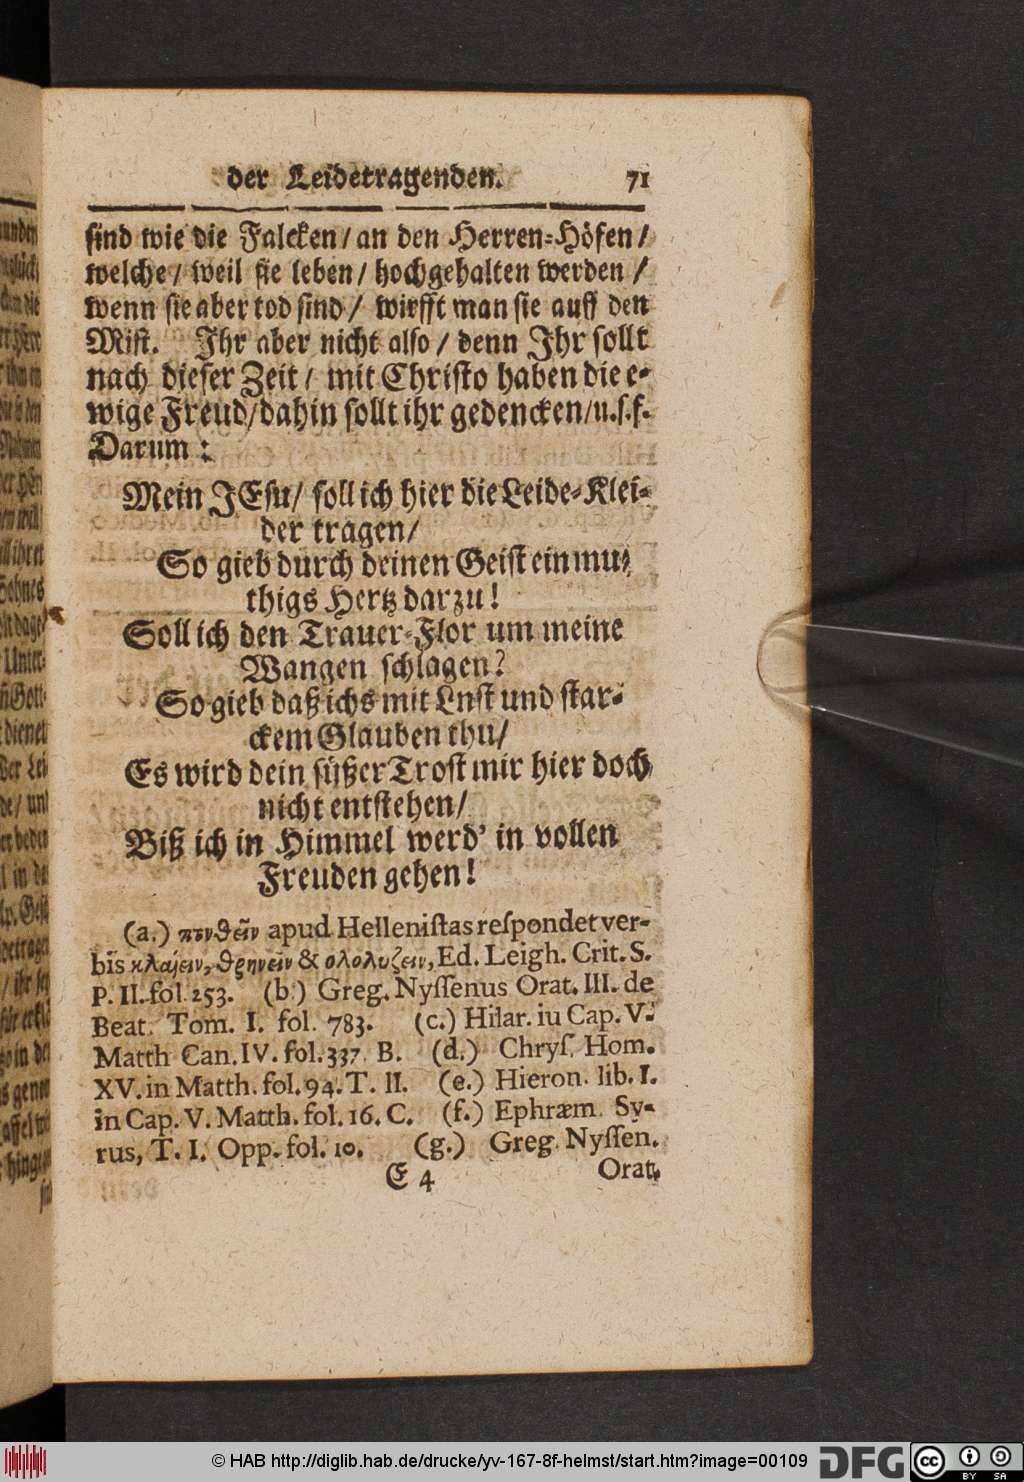 der Leidetragenden. 71
sind wie die Falcken / an den Herren-Höfen /
welche / weil sie leben / hochgehalten werden /
wenn sie aber tod sind / wirfft man sie auff den
Mist. Ihr aber nicht also / denn Ihr sollt
nach dieser Zeit / mit Christo haben die e-
wige Freud / dahin sollt ihr gedencken / u.s.f.
Darum:
Mein JEsu / soll ich hier die Leide-Klei-
der tragen /
So gieb durch deinen Geist ein mu-
thigs Hertz darzu!
Soll ich den Trauer-Flor um meine
Wangen schlagen?
So gieb daß ichs mit Lust und star-
ckem Glauben thu /
Es wird dein süßer Trost mir hier doch
nicht entstehen /
Biß ich in Himmel werd' in vollen
Freuden gehen!
(a.) πενθεῖν apud Hellenistas reſpondet ver-
bis κλαίειν, θρηνεῖν & ολολυζειν, Ed. Leigh. Crit. S.
P. II. fol. 253. (b.) Greg. Nyſſenus Orat. III. de
Beat. Tom. I. fol. 783. (c.) Hilar. iu Cap. V.
Matth Can. IV. fol. 337. B. (d.) Chryſ. Hom.
XV. in Matth. fol. 94. T. II. (e.) Hieron. lib. I.
in Cap. V. Matth. fol. 16. C. (f.) Ephræm. Sy-
rus, T. I. Opp. fol. 10. (g.) Greg. Nyſſen.
E 4 Orat.
© HAB http://diglib.hab.de/drucke/yv-167-8f-helmst/start.htm?image=00109
DFG
cc BY SA